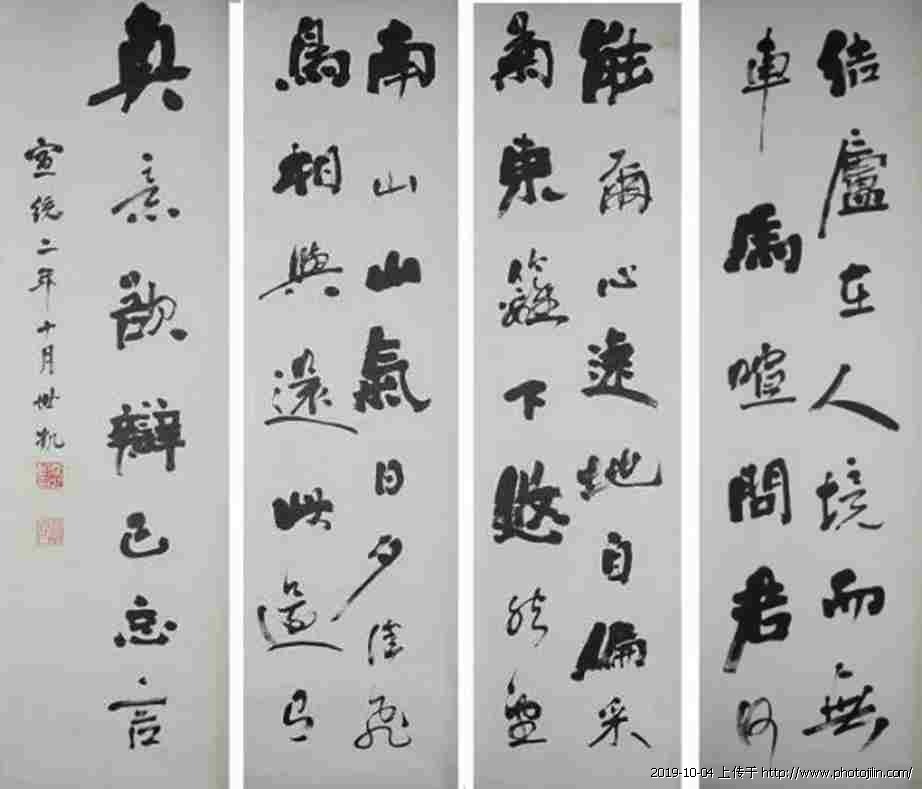 結廬在人境而無
車馬喧問君何
能爾心遠地自偏采
菊東籬下悠然望
南山山氣日夕佳飛
鳥相與還此有
真意欲辯已忘言
宣統二年十月世凱
2019-10-04 上传于 http://www.photojilin.com/